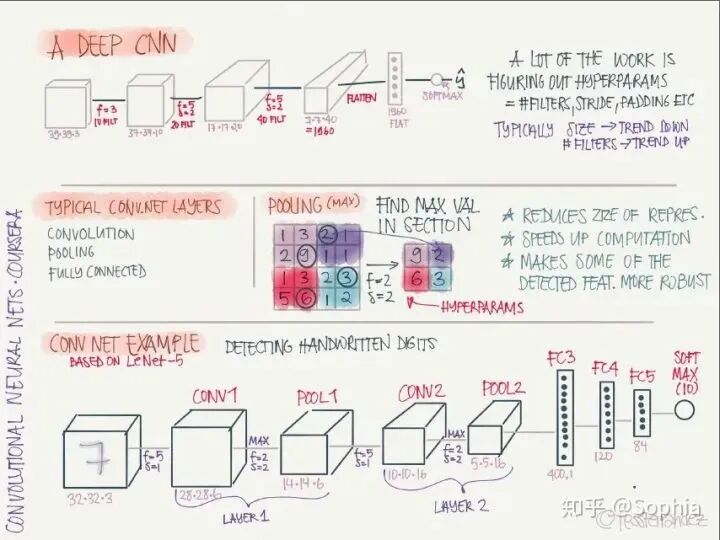 A DEEP CNN
39·39·3
f=3
10 FILT
37·37·10
f=5
s=2
20 FILT
17·17·20
f=5
s=2
40 FILT
7·7·40
=1960
FLATTEN
1960
FLAT
SOFTMAX
ŷ
A LOT OF THE WORK IS
FIGURING OUT HYPERPARAMS
= #FILTERS, STRIDE, PADDING ETC
TYPICALLY SIZE → TREND DOWN
# FILTERS → TREND UP
TYPICAL CONV.NET LAYERS
CONVOLUTION
POOLING
FULLY CONNECTED
POOLING (MAX)
1 3 2 1
2 9 1 1
1 3 2 3
5 6 1 2
FIND MAX VAL
IN SECTION
f=2
s=2
9 2
6 3
HYPERPARAMS
★ REDUCES SIZE OF REPRES.
★ SPEEDS UP COMPUTATION
★ MAKES SOME OF THE
DETECTED FEAT. MORE ROBUST
CONV NET EXAMPLE
BASED ON LeNet-5
DETECTING HANDWRITTEN DIGITS
7
32·32·3
f=5
s=1
CONV1
28·28·6
MAX
f=2
s=2
POOL1
14·14·6
LAYER 1
f=5
s=1
CONV2
10·10·16
MAX
f=2
s=2
POOL2
5·5·16
LAYER 2
FC3
400,1
FC4
120
FC5
84
SOFT
MAX
(10)
CONVOLUTIONAL NEURAL NETS · COURSERA
知乎 @Sophia